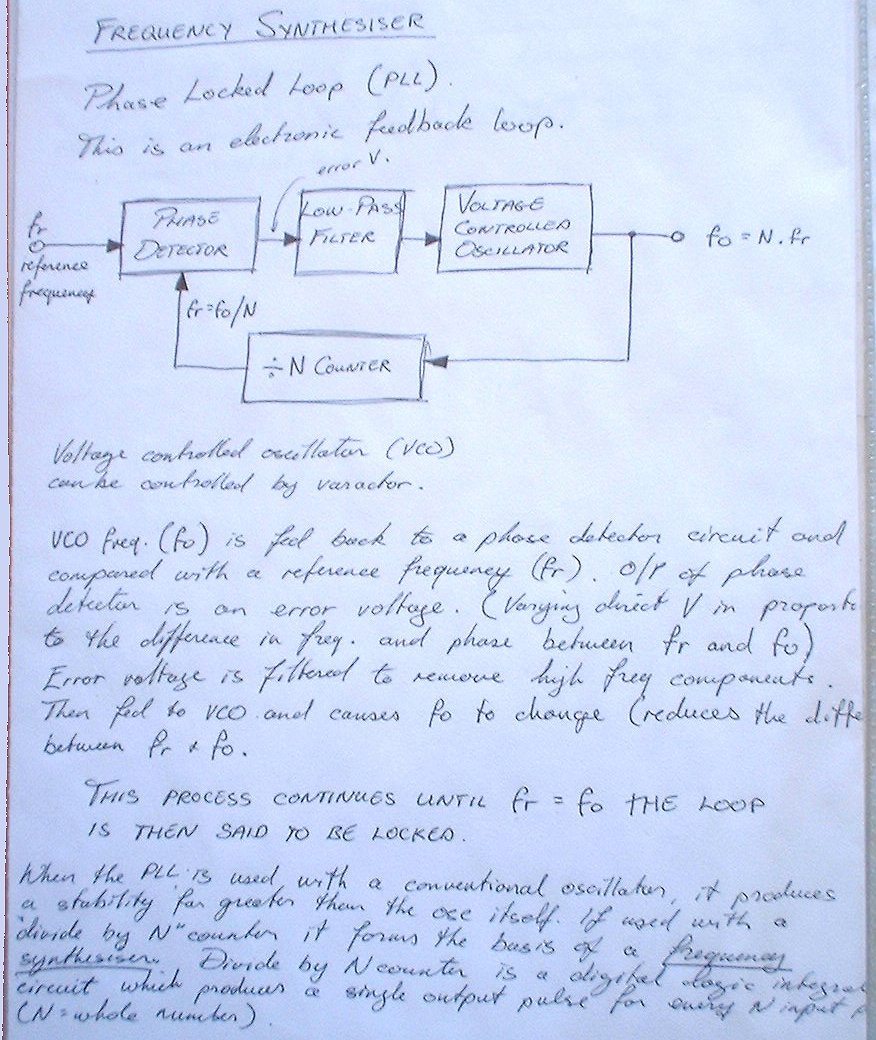 FREQUENCY SYNTHESISER
Phase Locked Loop (PLL).
This is an electronic feedback loop.
error V.
fr
reference
frequency
PHASE
DETECTOR
LOW-PASS
FILTER
VOLTAGE
CONTROLLED
OSCILLATOR
fo = N.fr
fr=fo/N
÷ N COUNTER
Voltage controlled oscillator (VCO)
can be controlled by varactor.
VCO freq. (fo) is fed back to a phase detector circuit and
compared with a reference frequency (fr). O/P of phase
detector is an error voltage. (Varying direct V in proporti
to the difference in freq. and phase between fr and fo)
Error voltage is filtered to remove high freq components.
Then fed to VCO and causes fo to change (reduces the diffe
between fr & fo.
THIS PROCESS CONTINUES UNTIL fr = fo THE LOOP
IS THEN SAID TO BE LOCKED.
When the PLL is used with a conventional oscillator, it produces
a stability far greater than the osc itself. If used with a
"divide by N" counter it forms the basis of a frequency
synthesiser. Divide by N counter is a digital logic integrat
circuit which produces a single output pulse for every N input p
(N = whole number).